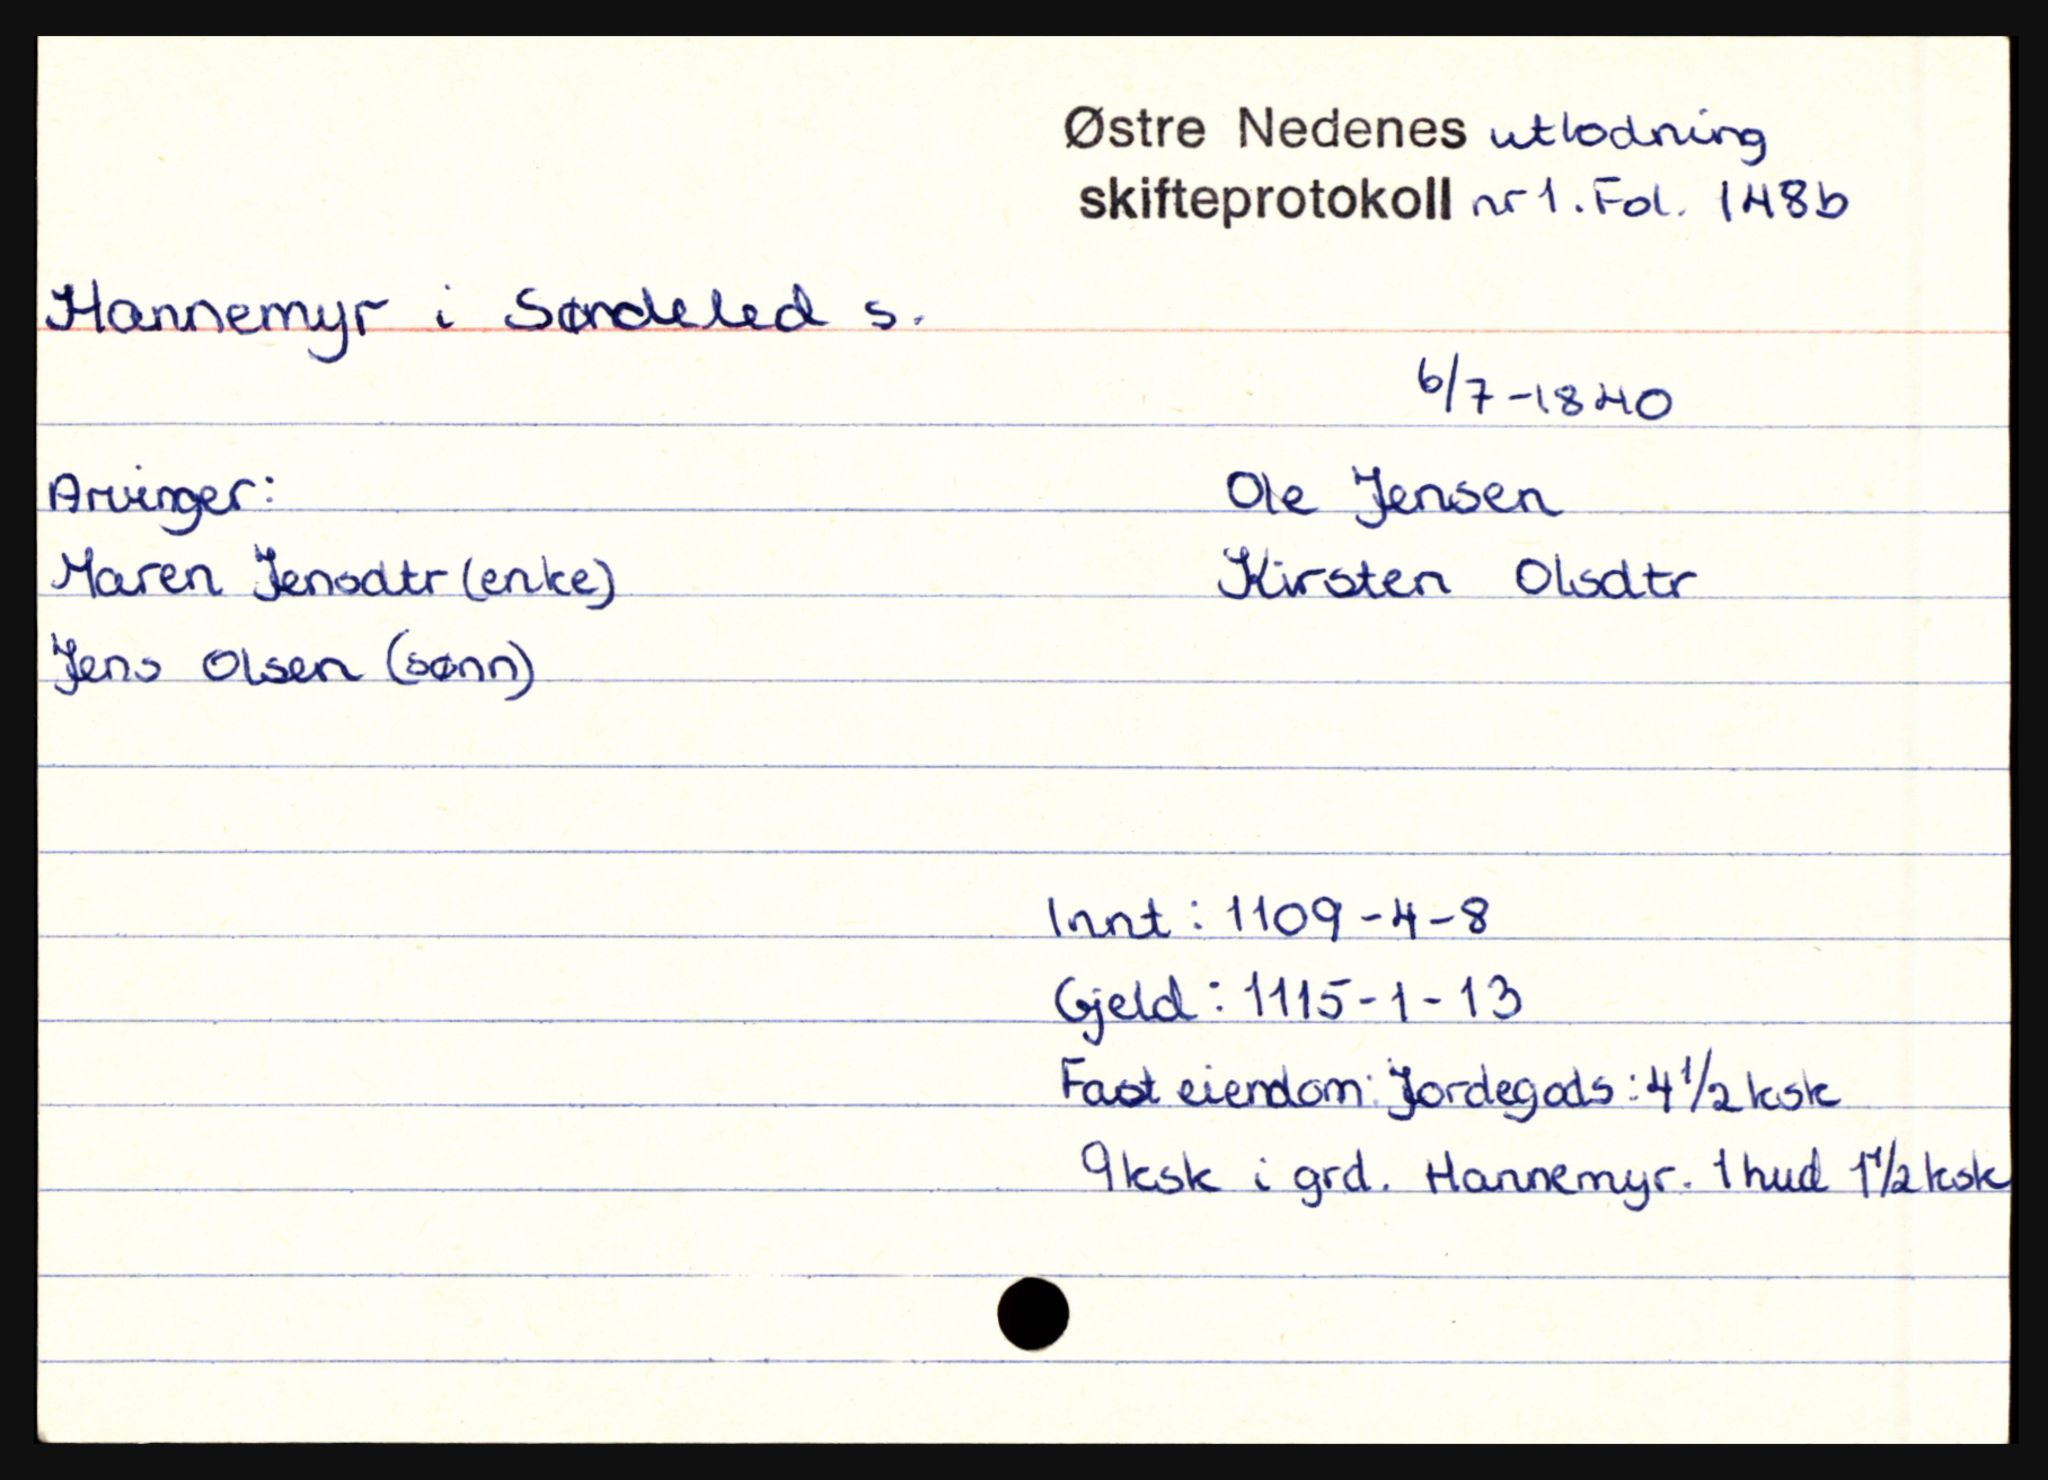 Østre Nedenes utlodning
skifteprotokoll nr 1. Fol. 148b
Hannemyr i Søndeled s.
6/7-1840
Arvinger:
Ole Jensen
Maren Jensdtr (enke)
Kirsten Olsdtr
Jens Olsen (sønn)
Innt: 1109-4-8
Gjeld: 1115-1-13
Fast eiendom: Jordegods: 4 1/2 ksk
9 ksk i grd. Hannemyr. 1 hud 1 1/2 ksk